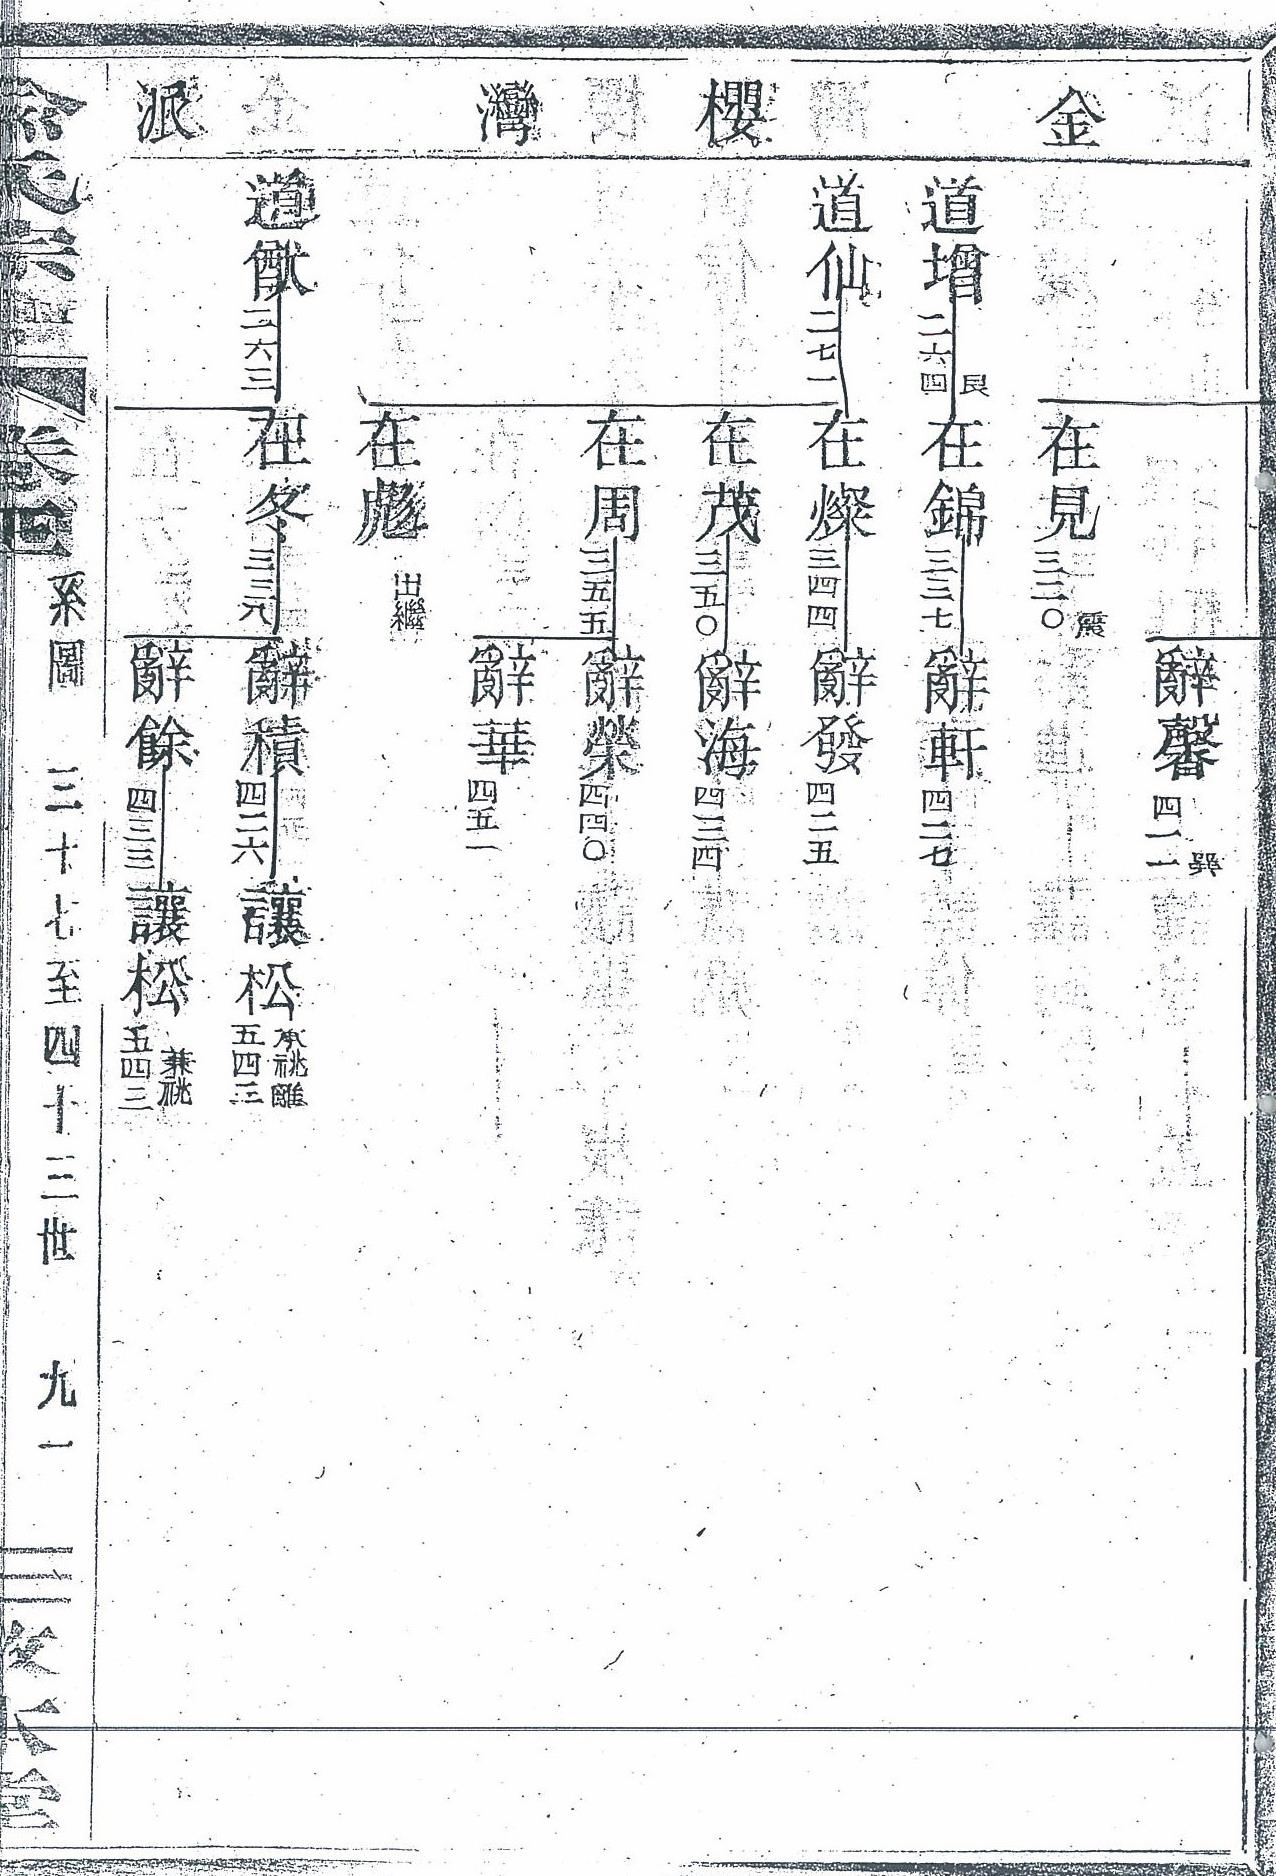 金櫻灣派
辭馨 四一一 巽
在見 三二〇 震
道增 二六四 艮
在錦 三三七
辭軒 四二七
道仙 二七一
在燦 三四四
辭發 四二五
在茂 三五〇
辭海 四三四
在周 三五五
辭榮 四四〇
辭華 四五一
在彪 出繼
道猷 二六三
在冬 三三六
辭積 四二六
讓松 五四三 承祧離
辭餘 四三三
讓松 五四三 兼祧
系圖 三十七至四十三世 九一